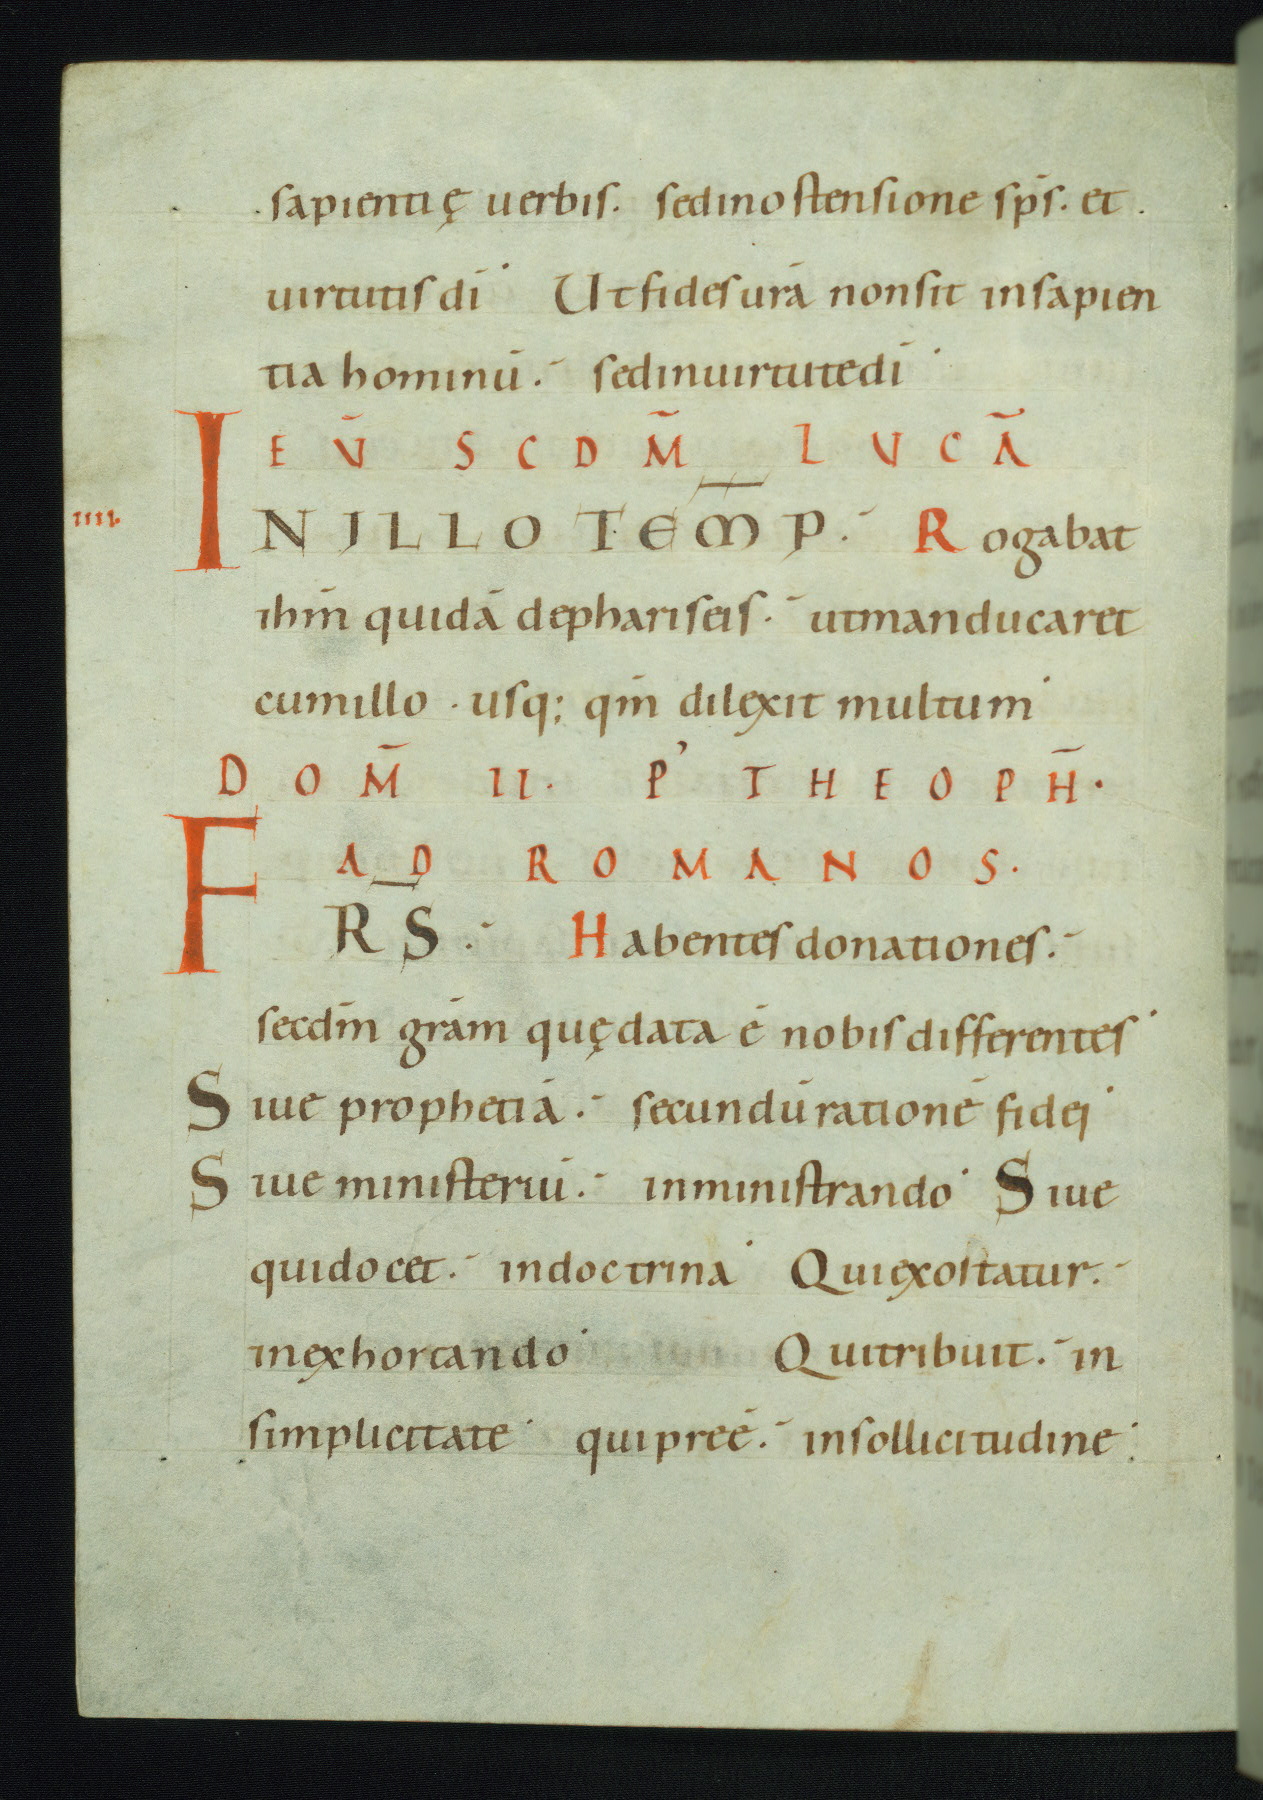 sapientię uerbis. sed in ostensione sp̄s. et
uirtutis dī Ut fides urā non sit in sapien
tia hominū. sed in uirtute dī
EŪ SCDM̄ LVCĀ
IIII. IN ILLO TEM̄P. Rogabat
ihm̄ quidā de phariseis. ut manducaret
cum illo. usq; qm̄ dilexit multum
DOM̄ II. P' THEOPH̄.
AD ROMANOS.
FRS̄. Habentes donationes.
secdm̄ grām quę data ē nobis differentes
Siue prophetiā. secundū rationē fidei
Siue ministeriū. in ministrando Siue
qui docet. in doctrina Qui exortatur.
in exhortando Qui tribuit. in
simplicitate qui preē. in sollicitudine